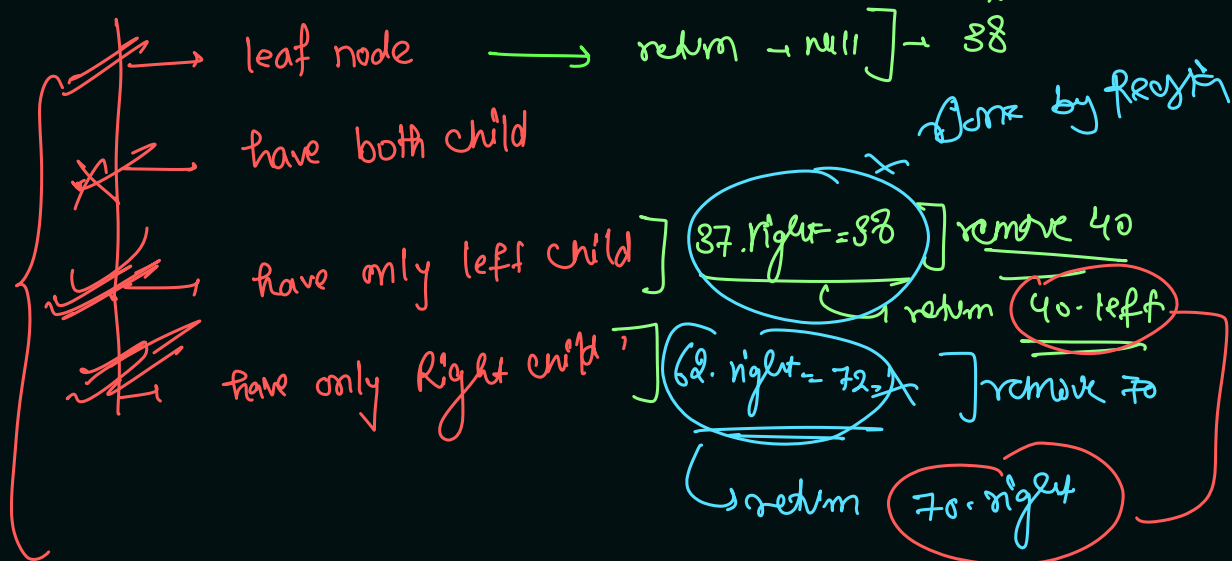 leaf node → return → null ] → 38
Done by
have both child
have only left child ] 37.right = 38 ] remove 40
return 40.left
have only Right child ] 62.right = 72 ] remove 70
return 70.right